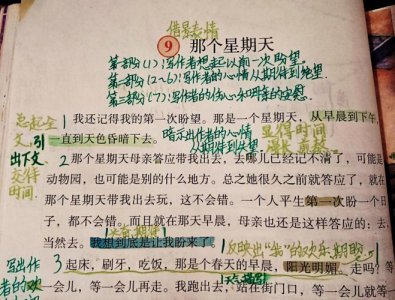 借景表情
9 那个星期天
第一部分(1):写作者想起以前一次盼望。
第二部分(2~6):写作者的心情从期待到绝望。
第三部分(7):写作者的伤心和母亲的安慰。
总起全文,引出下文
交代时间
1 我还记得我的第一次盼望。那是一个星期天,从早晨到下午,
一直到天色昏暗下去。
暗示出作者的心情从期待到失望
显得时间漫长 煎熬
2 那个星期天母亲答应带我出去,去哪儿已经记不清了,可能是
动物园,也可能是别的什么地方。总之她很久之前就答应了,就在
那个星期天带我出去玩,这不会错。一个人平生第一次盼一个日
子,都不会错。而且就在那天早晨,母亲也还是这样答应的:去,
当然去。我想到底是让我盼来了。
反映出“我”的欢乐期盼
写出作者的
3 起床,刷牙,吃饭,那是个春天的早晨,阳光明媚。走吗?等
一会儿,等一会儿再走。我跑出去,站在街门口,等一会儿就等一